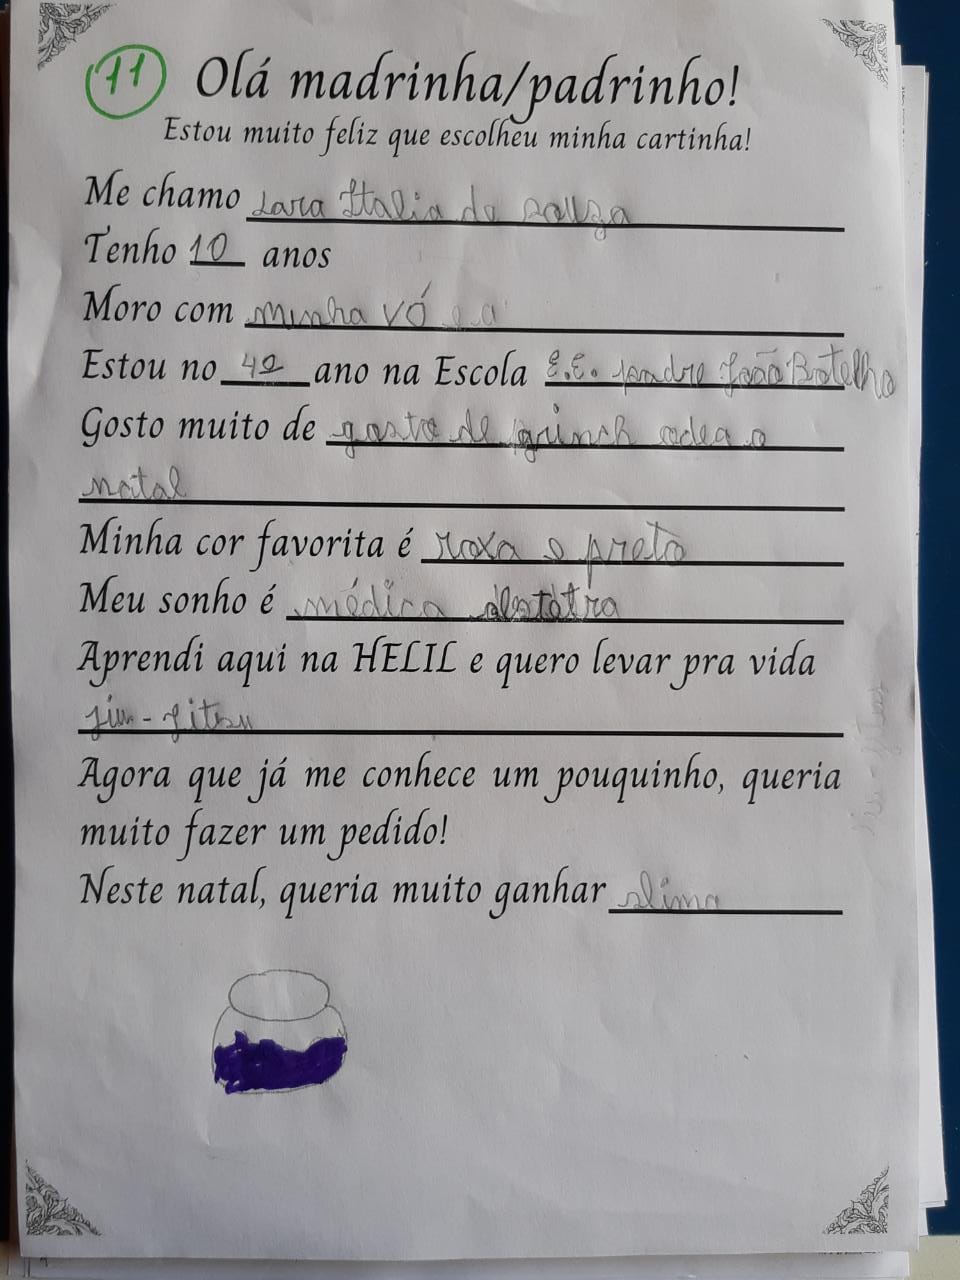 11
Olá madrinha/padrinho!
Estou muito feliz que escolheu minha cartinha!
Me chamo Lara Italia de souza
Tenho 10 anos
Moro com minha vó
Estou no 4º ano na Escola E.E. padre João Botelho
Gosto muito de gosto de grinch odea o
natal
Minha cor favorita é roxa e preto
Meu sonho é médica
Aprendi aqui na HELIL e quero levar pra vida
jiu-jitsu
Agora que já me conhece um pouquinho, queria
muito fazer um pedido!
Neste natal, queria muito ganhar slime